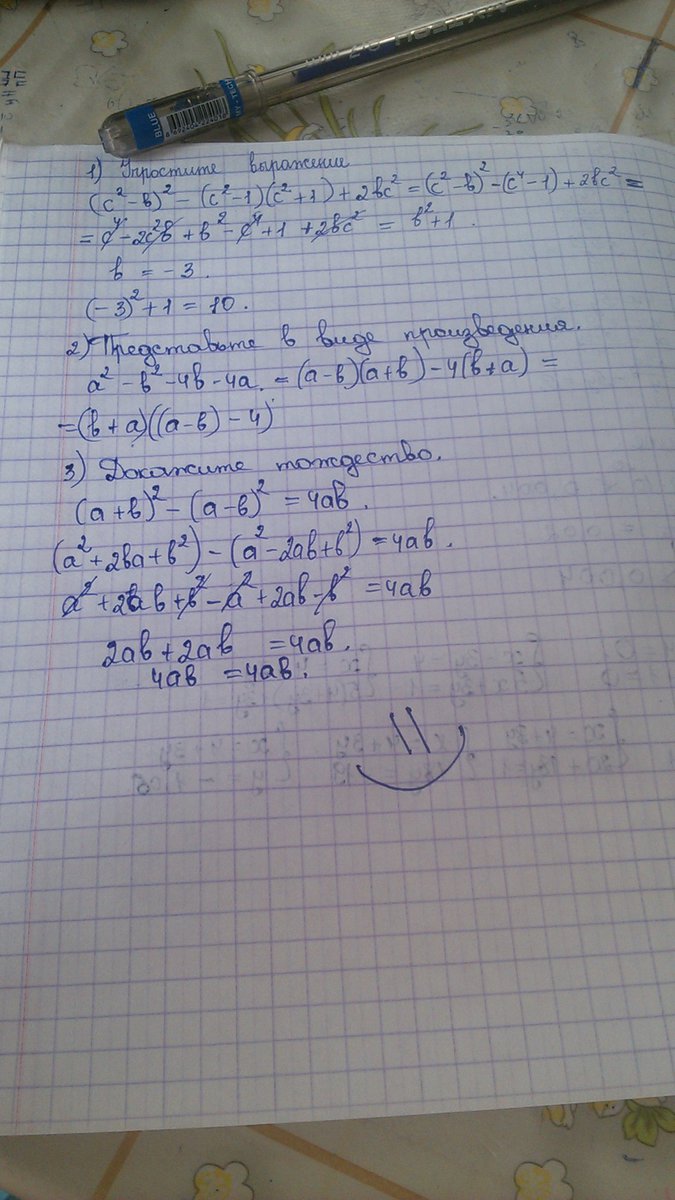 BLUE
MY-TECH
1) Упростите выражение
(c² - b)² - (c² - 1)(c² + 1) + 2bc² = (c² - b)² - (c⁴ - 1) + 2bc² =
= c⁴ - 2c²b + b² - c⁴ + 1 + 2bc² = b² + 1.
b = -3.
(-3)² + 1 = 10.
2) Представьте в виде произведения.
a² - b² - 4b - 4a. = (a - b)(a + b) - 4(b + a) =
= (b + a)((a - b) - 4)
3) Докажите тождество.
(a + b)² - (a - b)² = 4ab.
(a² + 2ba + b²) - (a² - 2ab + b²) = 4ab.
a² + 2ab + b² - a² + 2ab - b² = 4ab
2ab + 2ab = 4ab.
4ab = 4ab.